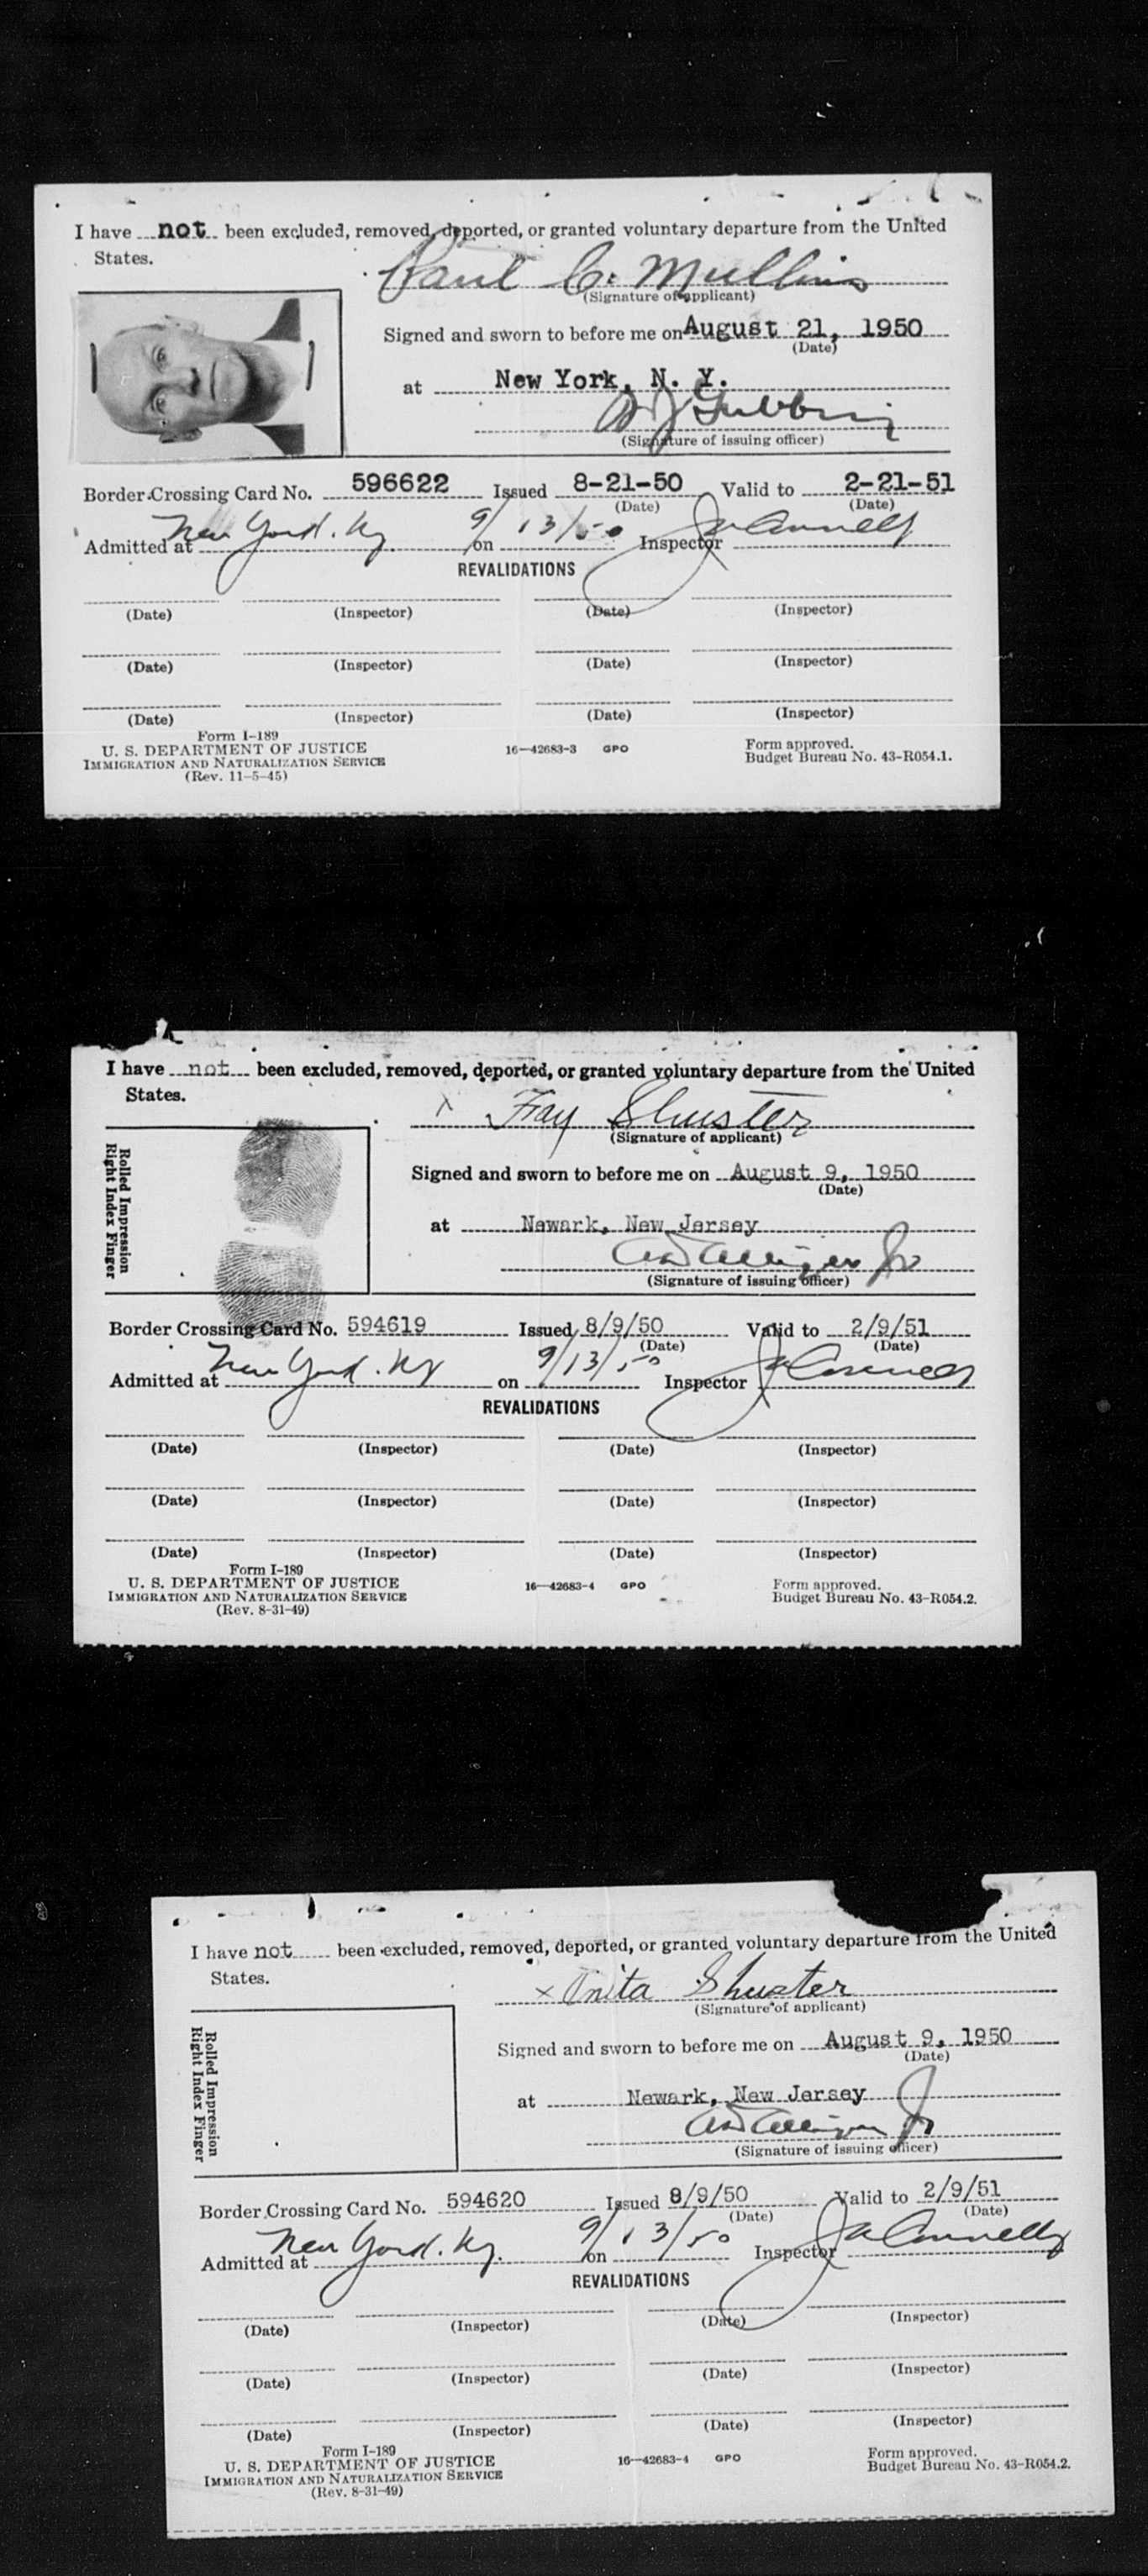 I have not been excluded, removed, deported, or granted voluntary departure from the United
States.
Paul C. Mullins
(Signature of applicant)
Signed and sworn to before me on August 21, 1950
(Date)
at New York, N. Y.
(Signature of issuing officer)
Border Crossing Card No. 596622 Issued 8-21-50 Valid to 2-21-51
(Date) (Date)
Admitted at New York. Ny. on 9/13/50 Inspector
REVALIDATIONS
(Date) (Inspector) (Date) (Inspector)
(Date) (Inspector) (Date) (Inspector)
(Date) (Inspector) (Date) (Inspector)
Form I-189
U. S. DEPARTMENT OF JUSTICE 16—42683-3 GPO Form approved.
IMMIGRATION AND NATURALIZATION SERVICE Budget Bureau No. 43-R054.1.
(Rev. 11-5-45)
I have not been excluded, removed, deported, or granted voluntary departure from the United
States.
x Fay Shuster
(Signature of applicant)
Rolled Impression
Right Index Finger
Signed and sworn to before me on August 9, 1950
(Date)
at Newark, New Jersey
(Signature of issuing officer)
Border Crossing Card No. 594619 Issued 8/9/50 Valid to 2/9/51
(Date) (Date)
Admitted at New York. Ny on 9/13/50 Inspector
REVALIDATIONS
(Date) (Inspector) (Date) (Inspector)
(Date) (Inspector) (Date) (Inspector)
(Date) (Inspector) (Date) (Inspector)
Form I-189
U. S. DEPARTMENT OF JUSTICE 16—42683-4 GPO Form approved.
IMMIGRATION AND NATURALIZATION SERVICE Budget Bureau No. 43-R054.2.
(Rev. 8-31-49)
I have not been excluded, removed, deported, or granted voluntary departure from the United
States.
x Anita Shuster
(Signature of applicant)
Rolled Impression
Right Index Finger
Signed and sworn to before me on August 9, 1950
(Date)
at Newark, New Jersey
(Signature of issuing officer)
Border Crossing Card No. 594620 Issued 8/9/50 Valid to 2/9/51
(Date) (Date)
Admitted at New York. Ny. on 9/13/50 Inspector J A Connelly
REVALIDATIONS
(Date) (Inspector) (Date) (Inspector)
(Date) (Inspector) (Date) (Inspector)
(Date) (Inspector) (Date) (Inspector)
Form I-189
U. S. DEPARTMENT OF JUSTICE 16—42683-4 GPO Form approved.
IMMIGRATION AND NATURALIZATION SERVICE Budget Bureau No. 43-R054.2.
(Rev. 8-31-49)